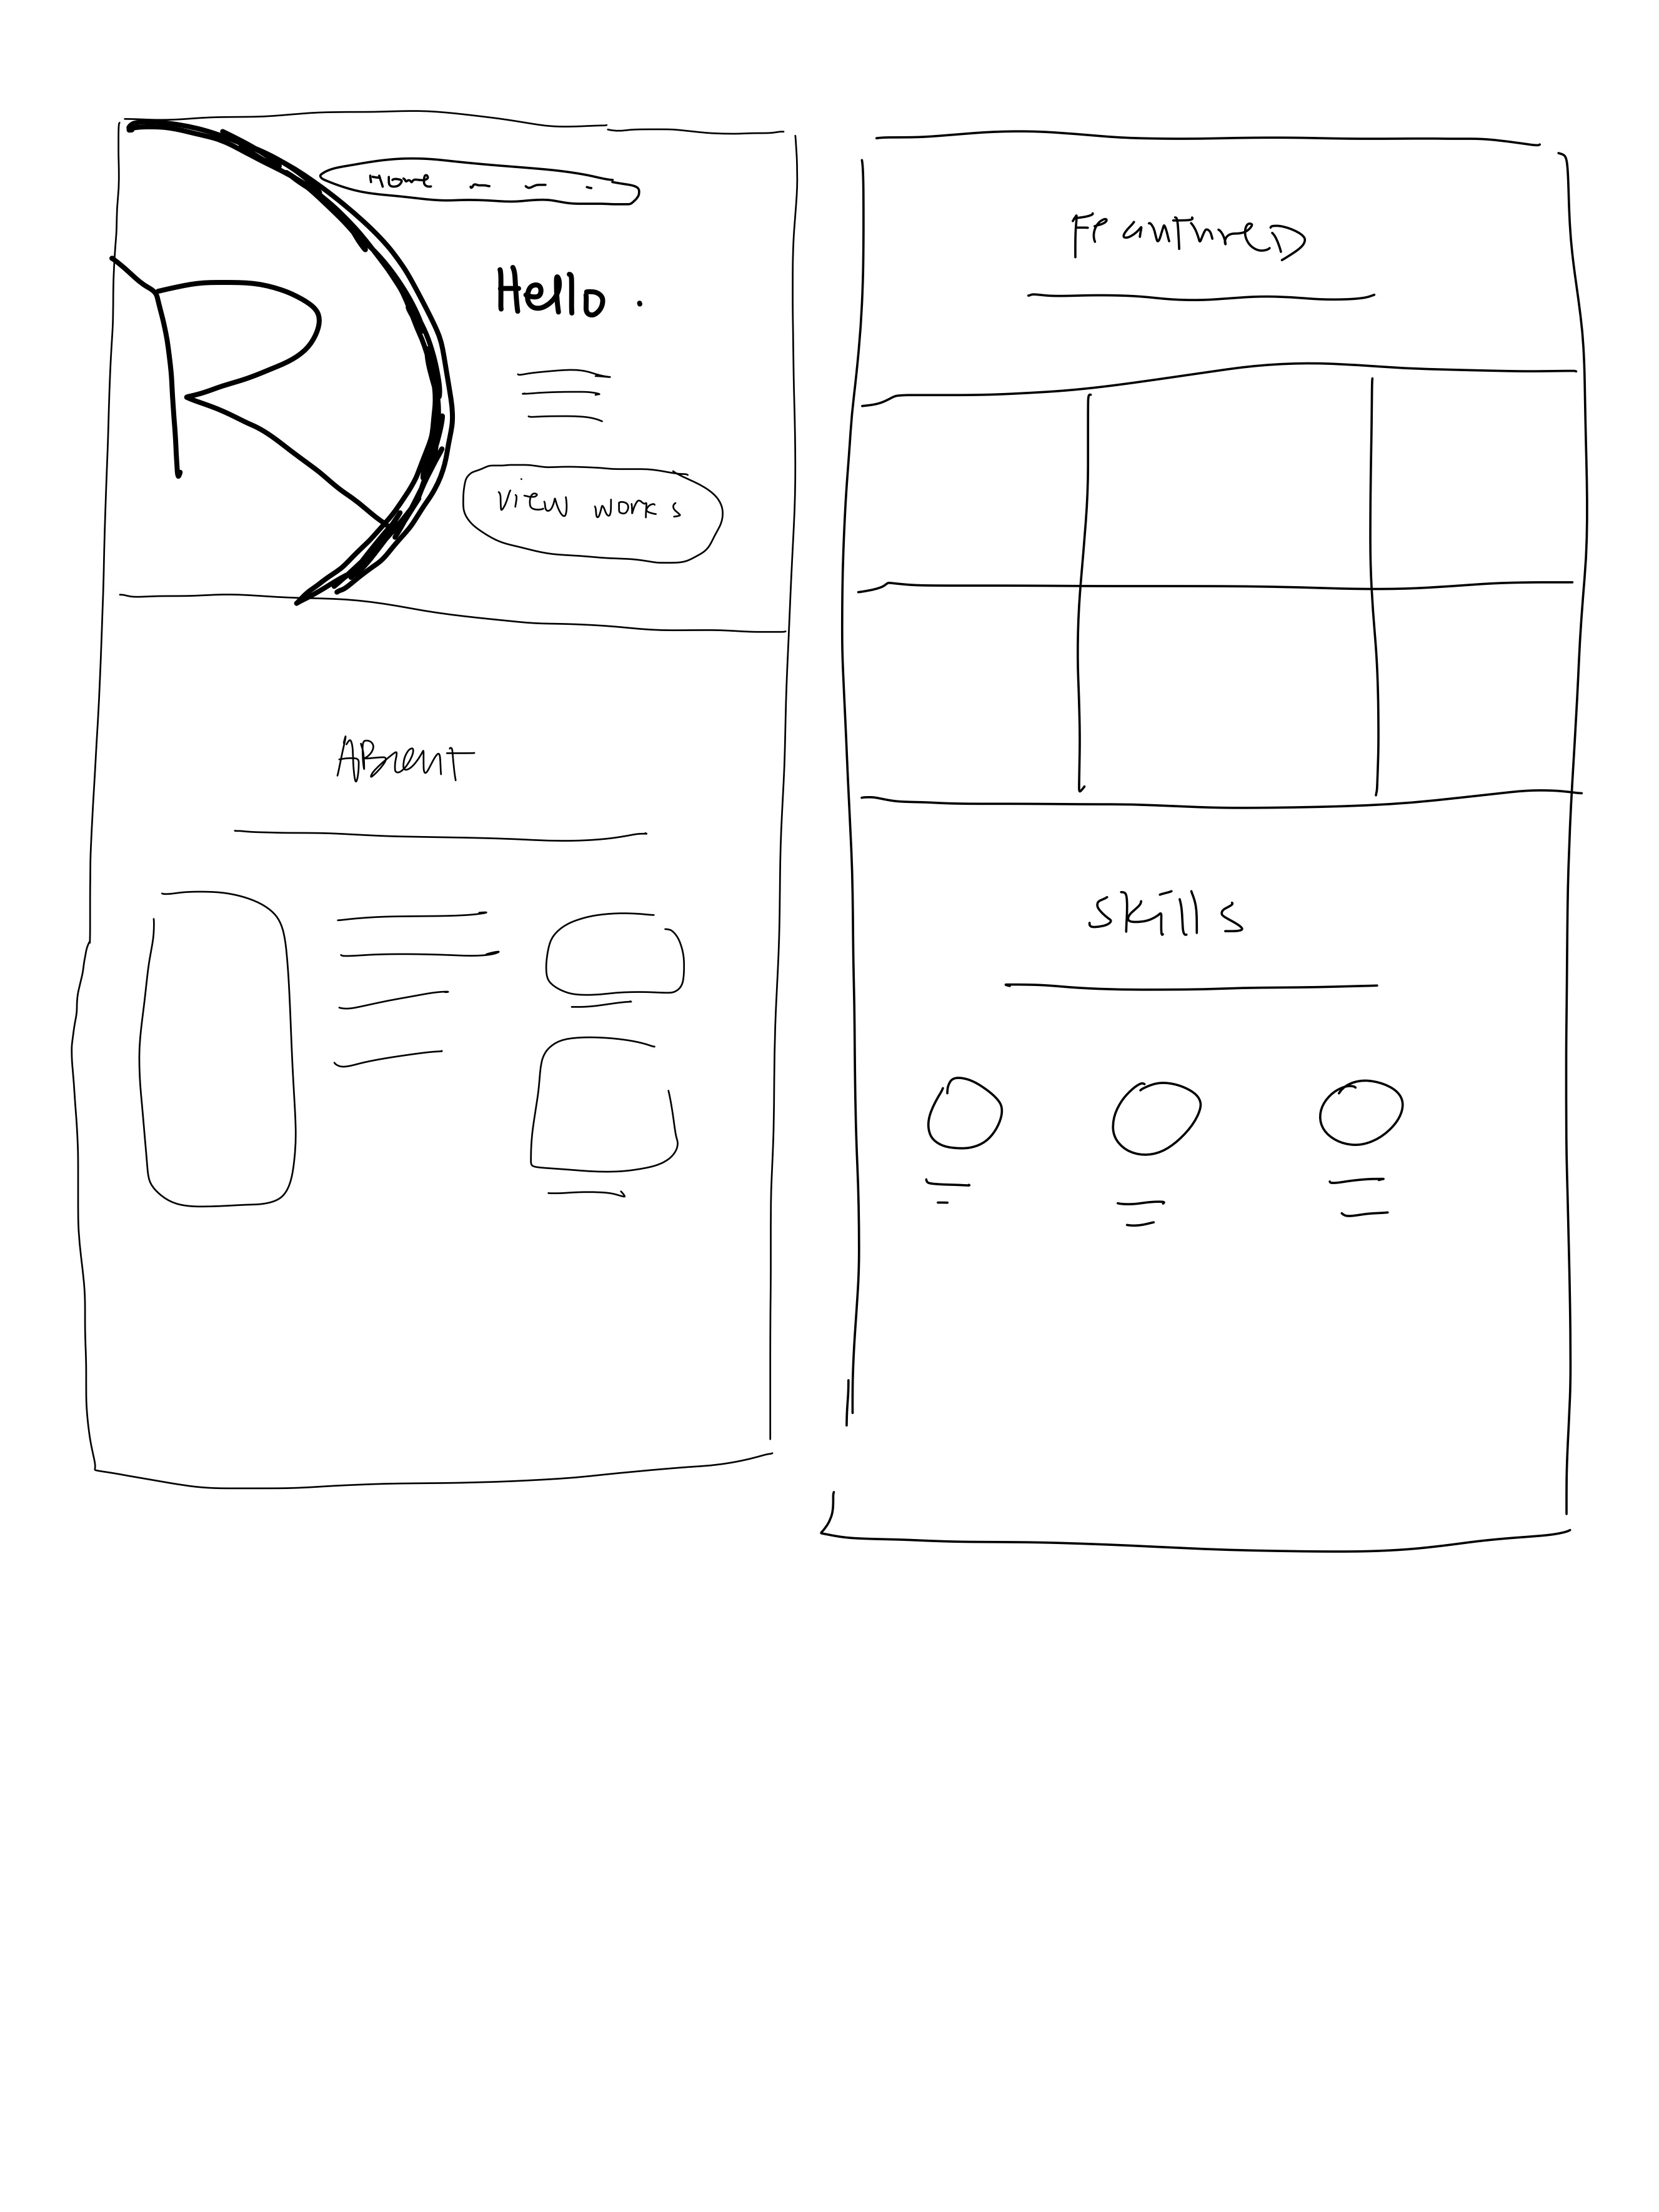 Home
R
Hello.
View works
About
Featured
Skills